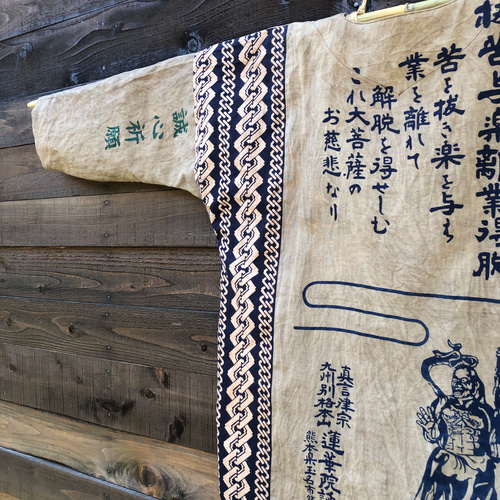 抜苦与楽離業得脱
苦を抜き楽を与え
業を離れて
解脱を得せしむ
これ大菩薩の
お慈悲なり
誠心祈願
真言律宗
九州別格本山
蓮華院
熊本県玉名市